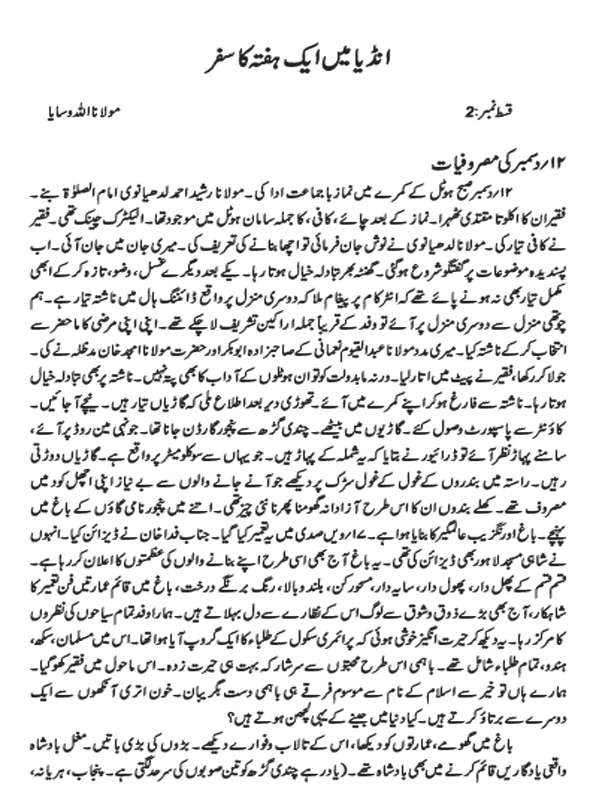 انڈیا میں ایک ہفتہ کا سفر
قسط نمبر:2 مولانا اللہ وسایا
۱۲؍دسمبر کی مصروفیات
۱۲؍دسمبر صبح ہوٹل کے کمرے میں نماز باجماعت ادا کی۔ مولانا رشید احمد لدھیانوی امام الصلوٰۃ بنے۔
فقیر ان کا اکلوتا مقتدی ٹھہرا۔ نماز کے بعد چائے، کافی، کا جملہ سامان ہوٹل میں موجود تھا۔ الیکٹرک چینک تھی۔ فقیر
نے کافی تیار کی۔ مولانا لدھیانوی نے نوش جان فرمائی تو اچھا بنانے کی تعریف کی۔ میری جان میں جان آئی۔ اب
پسندیدہ موضوعات پر گفتگو شروع ہوگئی۔ گھنٹہ بھر تبادلہ خیال ہوتا رہا۔ یکے بعد دیگرے غسل، وضو، تازہ کرکے ابھی
مکمل تیار بھی نہ ہونے پائے تھے کہ انٹرکام پر پیغام ملا کہ دوسری منزل پر واقع ڈائننگ ہال میں ناشتہ تیار ہے۔ ہم
چوتھی منزل سے دوسری منزل پر آئے تو وفد کے قریباً جملہ اراکین تشریف لاچکے تھے۔ اپنی اپنی مرضی کا ماحضر سے
انتخاب کرکے ناشتہ کیا۔ میری مدد مولانا عبدالقیوم نعمانی کے صاحبزادہ ابوبکر اور حضرت مولانا امجد خان مدظلہ نے کی۔
جو لاکر رکھا، فقیر نے پیٹ میں اتار لیا۔ ورنہ مابدولت کو تو ان ہوٹلوں کے آداب کا بھی پتہ نہیں۔ ناشتہ پر بھی تبادلہ خیال
ہوتا رہا۔ ناشتہ سے فارغ ہوکر اپنے کمرے میں آئے۔ تھوڑی دیر بعد اطلاع ملی کہ گاڑیاں تیار ہیں۔ نیچے آجائیں۔
کاؤنٹر سے پاسپورٹ وصول کئے۔ گاڑیوں میں بیٹھے۔ چندی گڑھ سے پنجور گارڈن جانا تھا۔ جونہی مین روڈ پر آئے،
سامنے پہاڑ نظر آئے تو ڈرائیور نے بتایا کہ یہ شملہ کے پہاڑ ہیں۔ جو یہاں سے سو کلومیٹر پر واقع ہے۔ گاڑیاں دوڑتی
رہیں۔ راستہ میں بندروں کے غول کے غول سڑک پر دیکھے جو آنے جانے والوں سے بے نیاز اپنی اچھل کود میں
مصروف تھے۔ کھلے بندوں ان کا اس طرح آزادانہ گھومنا پھرنا نئی چیز تھی۔ اتنے میں پنجور نامی گاؤں کے باغ میں
پہنچے۔ باغ اورنگزیب عالمگیر کا بنایا ہوا ہے۔ ۱۷ویں صدی میں یہ تعمیر کیا گیا۔ جناب فدا خان نے ڈیزائن کیا۔ انہوں
نے شاہی مسجد لاہور بھی ڈیزائن کی تھی۔ یہ باغ آج بھی اسی طرح اپنے بنانے والوں کی عظمتوں کا اعلان کر رہا ہے۔
قسم قسم کے پھل دار، پھول دار، سایہ دار، مسحورکن، بلند و بالا، رنگ برنگے درخت، باغ میں قائم عمارتیں فن تعمیر کا
شاہکار، آج بھی بڑے ذوق و شوق سے لوگ اس کے نظارے سے دل بہلاتے ہیں۔ ہمارا وفد تمام سیاحوں کی نظروں
کا مرکز رہا۔ یہ دیکھ کر حیرت انگیز خوشی ہوئی کہ پرائمری سکول کے طلباء کا ایک گروپ آیا ہوا تھا۔ اس میں مسلمان، سکھ،
ہندو، تمام طلباء شامل تھے۔ باہمی اس طرح محبتوں سے سرشار کہ بہت ہی حیرت زدہ۔ اس ماحول میں فقیر کھو گیا۔
ہمارے ہاں تو خیر سے اسلام کے نام سے موسوم فرقے ہی باہمی دست بگریباں۔ خون اتری آنکھوں سے ایک
دوسرے سے برتاؤ کرتے ہیں۔ کیا دنیا میں جینے کے یہی لچھن ہوتے ہیں؟
باغ میں گھومے، عمارتوں کو دیکھا، اس کے تالاب و فوارے دیکھے۔ بڑوں کی بڑی باتیں۔ مغل بادشاہ
واقعی یادگاریں قائم کرنے میں بھی بادشاہ تھے۔ (یاد رہے چندی گڑھ کو تین صوبوں کی سرحد لگتی ہے۔ پنجاب، ہریانہ،